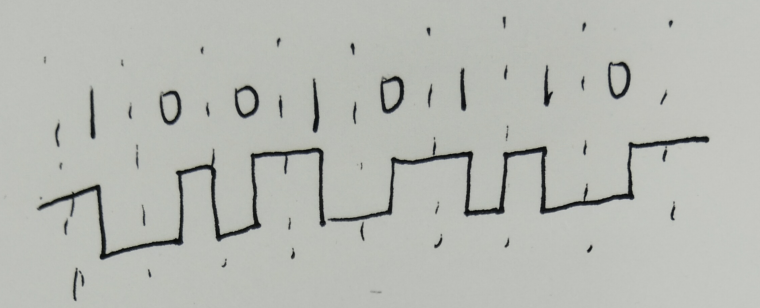 1 0 0 1 0 1 1 0